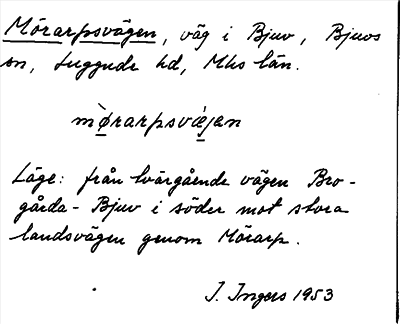 Mörarpsvägen, väg i Bjuv, Bjuvs
sn, Luggude hd, Mhs län.
mø̀rarpsvæ̀jan
Läge: från tvärgående vägen Bro-
gårda - Bjuv i söder mot stora
landsvägen genom Mörarp.
I. Ingers 1953